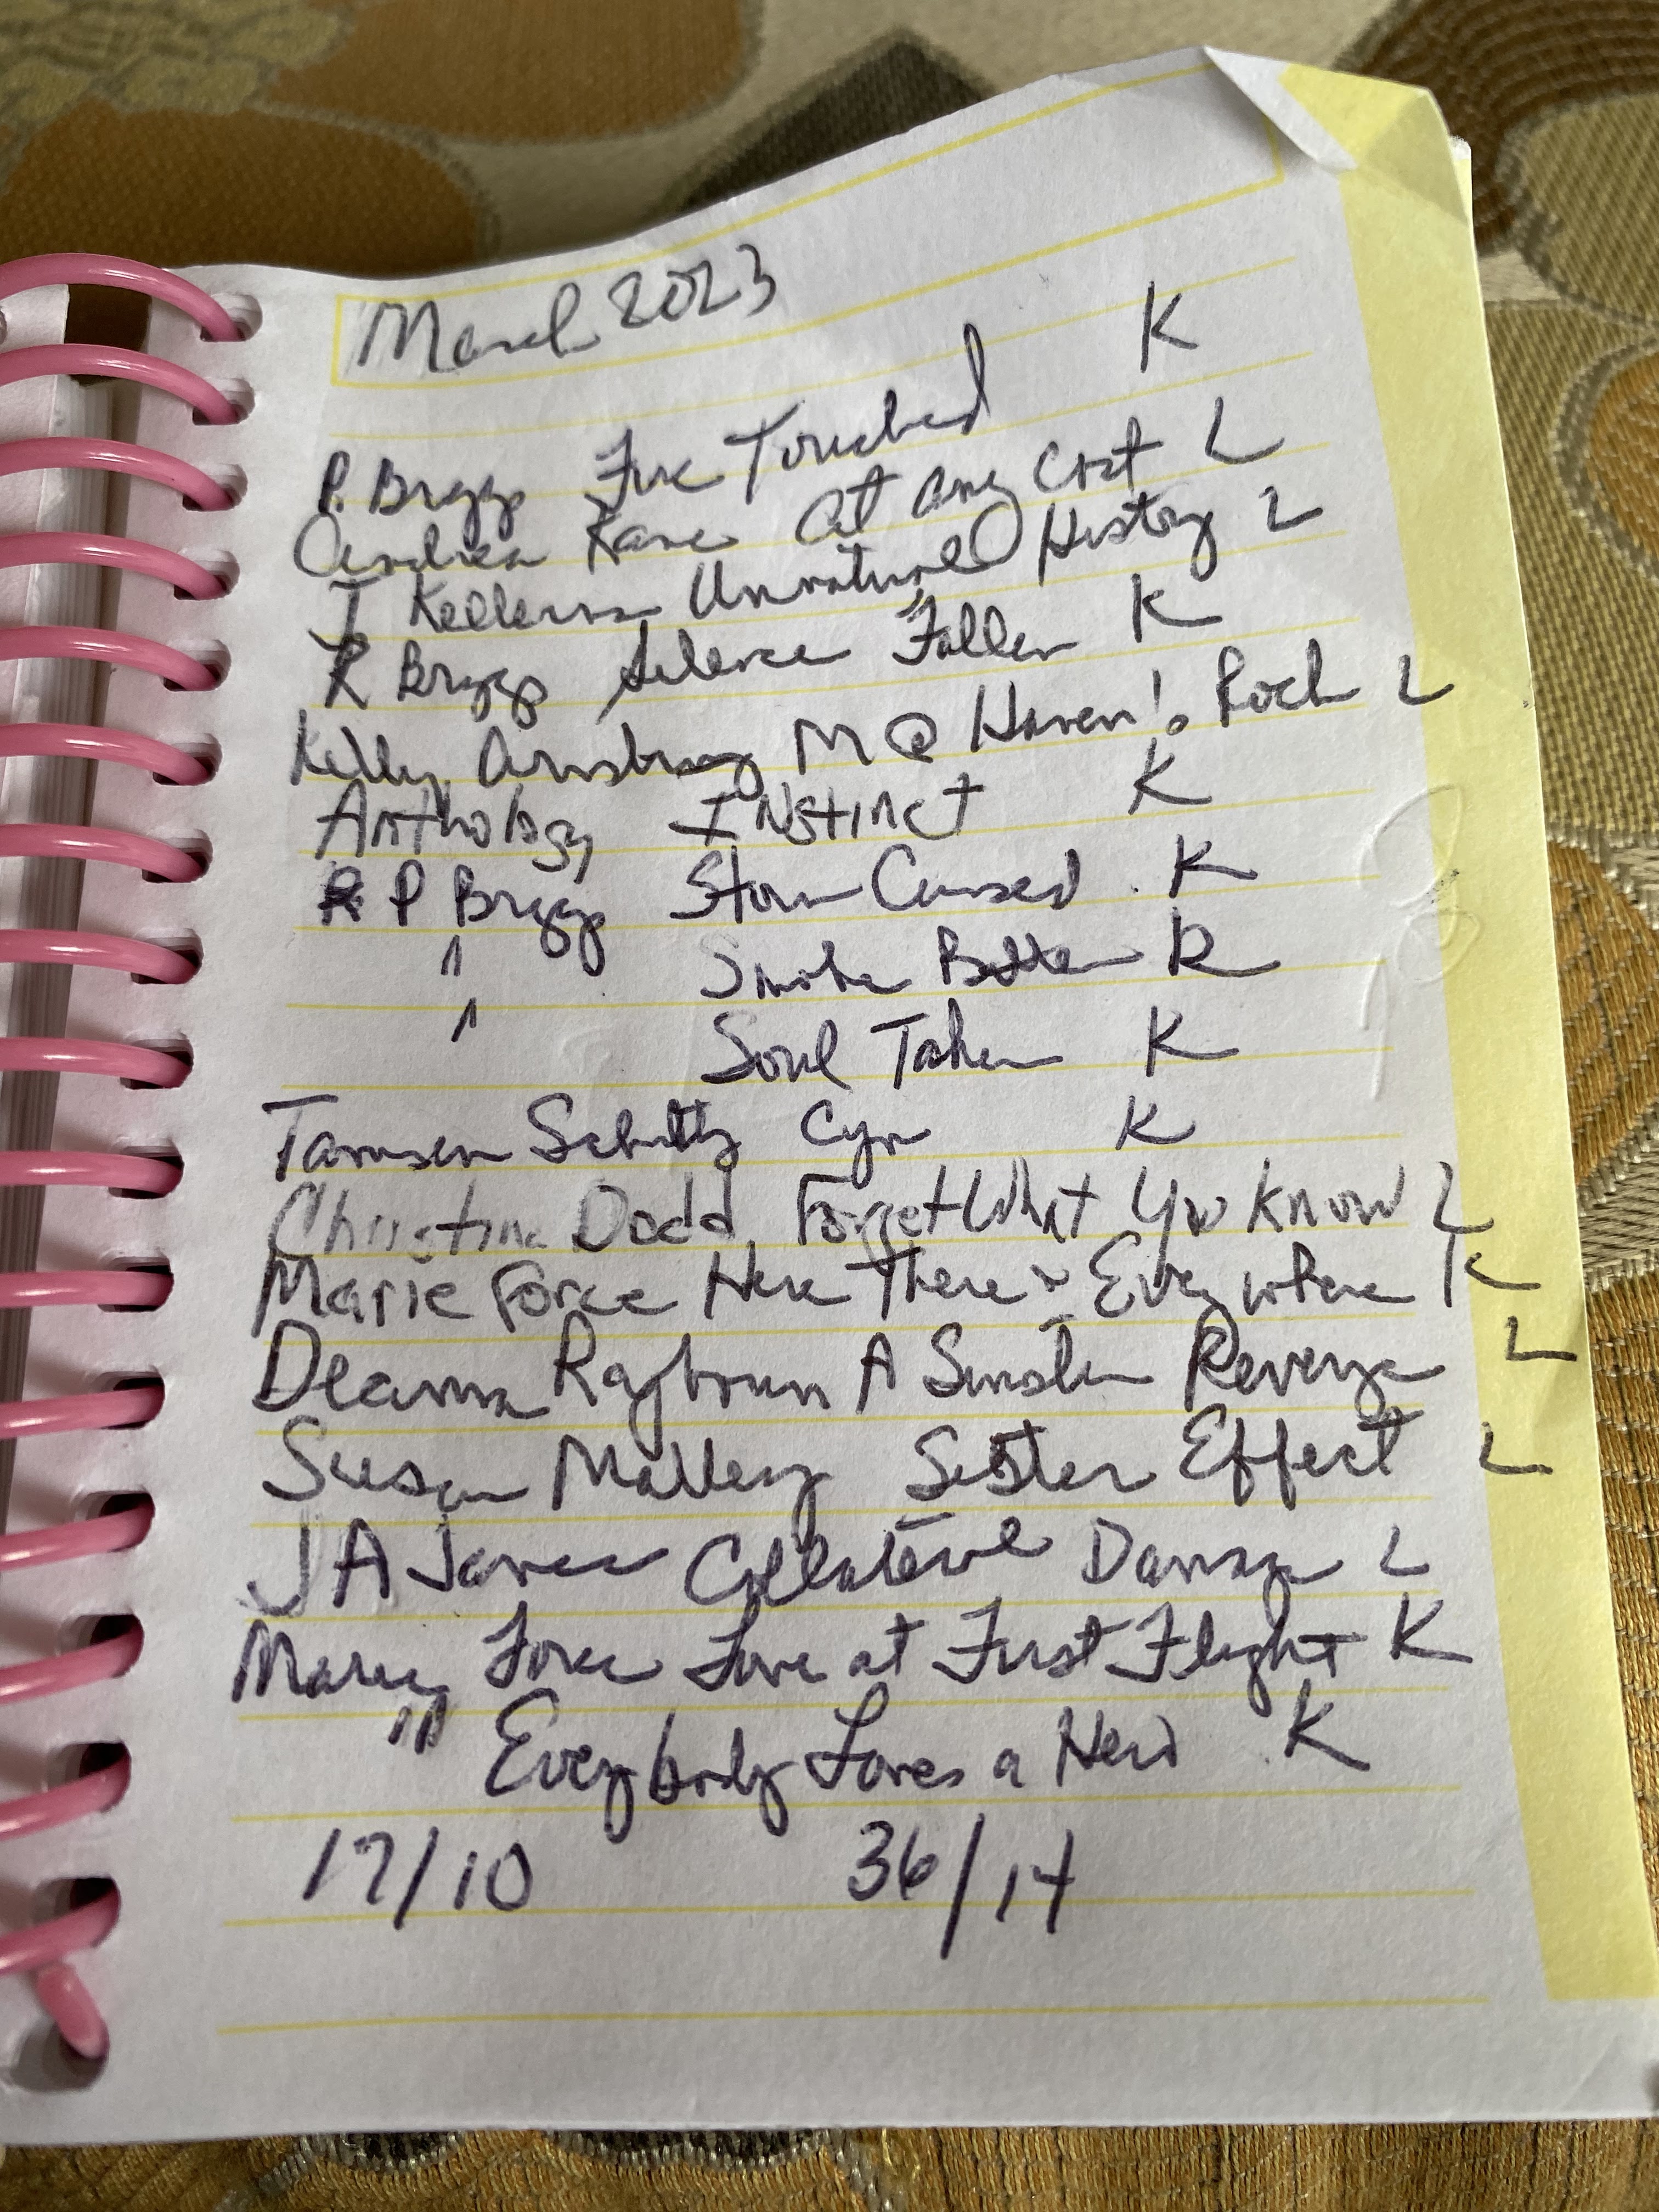 March 2023
P. Briggs Fire Touched K
Andrea Kane At any Cost L
J Kellerman Unnatural History L
P Briggs Silence Fallen K
Kelly Armstrong M @ Haven's Rock L
Anthology Instinct K
P Briggs Storm Cursed K
" Smoke Bitten K
" Soul Taken K
Tamsen Schultz Cyn K
Christina Dodd Forget What You Know L
Marie Force Here There & Everywhere K
Deanna Raybourn A Sinister Revenge L
Susan Mallery Sister Effect L
J A Jance Collateral Damage L
Marie Force Love at First Flight K
" Everybody Loves a Hero K
17/10 36/14